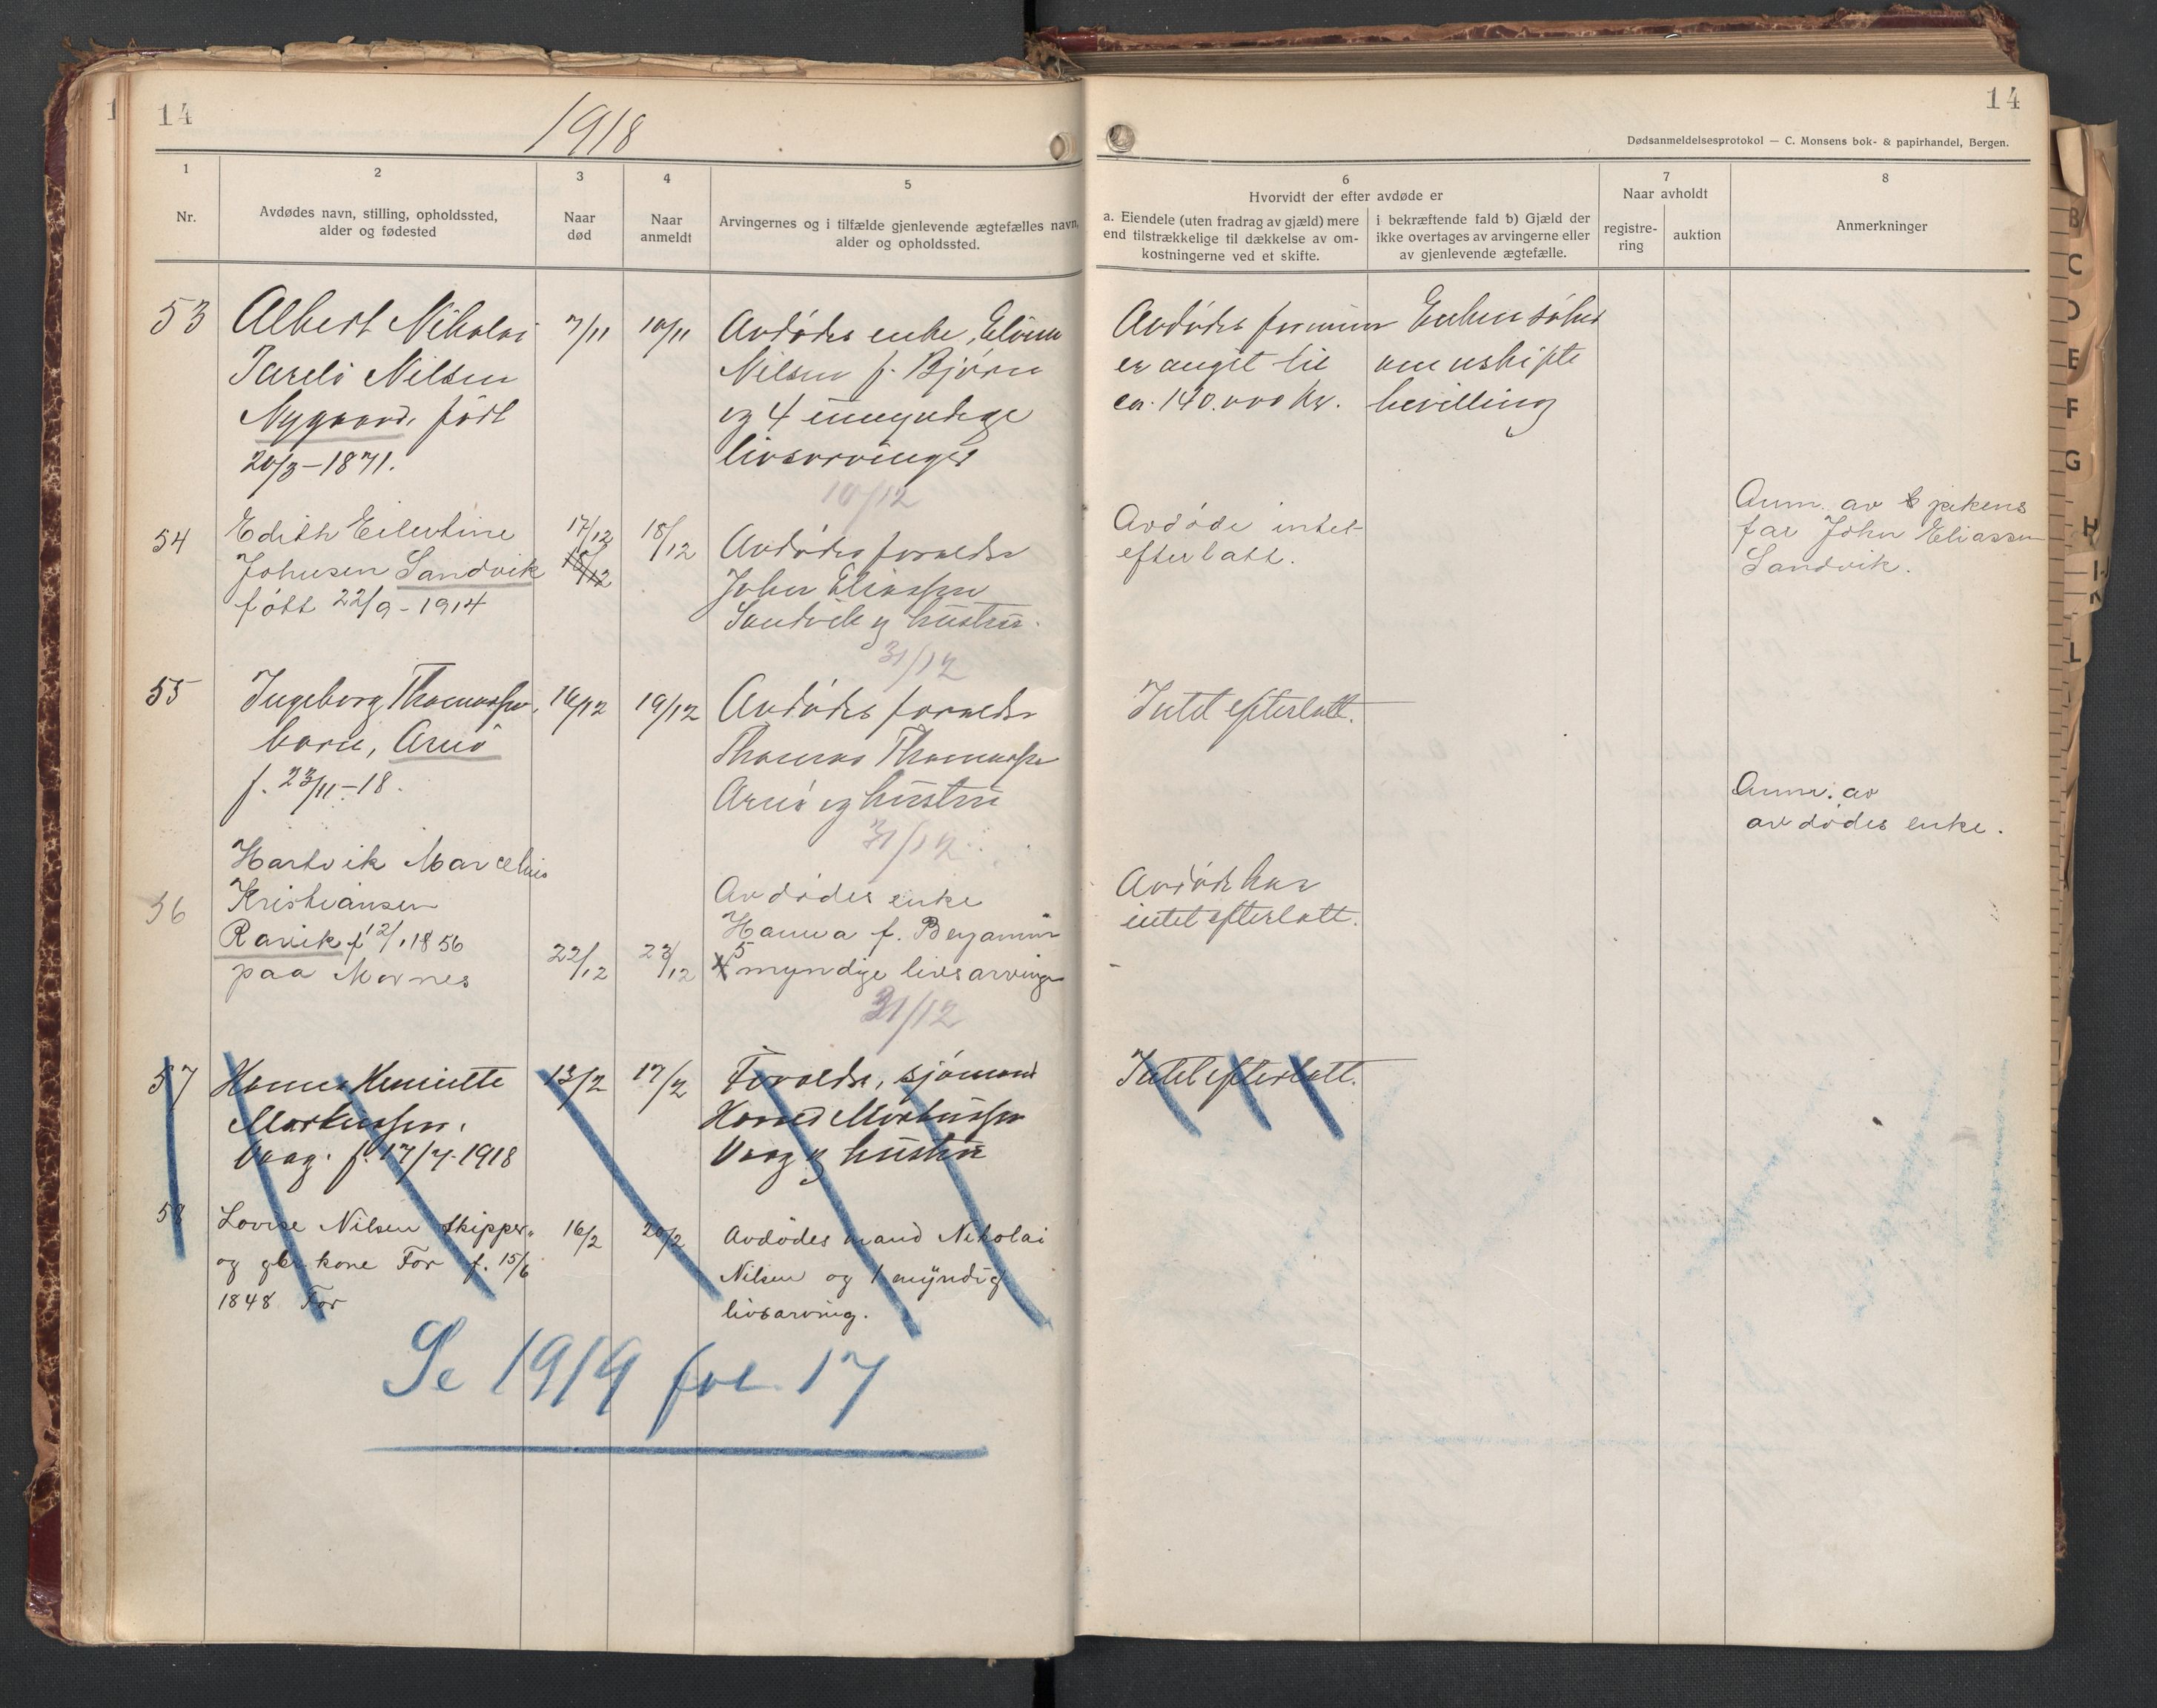 14
1918
1
2
3
4
5
Nr.
Avdødes navn, stilling, opholdssted,
alder og fødested
Naar
død
Naar
anmeldt
Arvingernes og i tilfælde gjenlevende ægtefælles navn,
alder og opholdssted.
53
Albert Nikolai
Nilsen
Nygaard, født
20/3-1871.
7/11
10/11
Avdødes enke,
Nilsen f. Bjørn
og 4 umyndige
livsarvinger
10/12
54
Edith Eilertine
Johnsen Sandvik
født 22/9-1914
17/12
15/12
18/12
Avdødes forældre
John Eliassen
Sandvik og hustru.
31/12
55
Ingeborg Thomassen,
barn, Arnø
f. 23/11-18.
16/12
19/12
Avdødes forældre
Thomas Thomassen
Arnø og hustru
31/12
56
Hartvik Marcelius
Kristiansen
Ravik f 12/1 1856
paa Mornes
22/12
23/12
Avdødes enke
Hanna f. Benjamin
5 myndige livsarvinger
31/12
57
Hanna Henriette
Markussen.
Vaag. f. 17/7-1918
13/2
17/2
Forældre, sjømand
Markussen
Vaag og hustru
58
Lovise Nilsen skipper-
og gbr. kone For f. 15/6
1848 For
16/2
20/2
Avdødes mand Nikolai
Nilsen og 1 myndig
livsarving.
Se 1919 fol. 17
14
Dødsanmeldelsesprotokol — C. Monsens bok- & papirhandel, Bergen.
6
Hvorvidt der efter avdøde er
a. Eiendele (uten fradrag av gjæld) mere
end tilstrækkelige til dækkelse av om-
kostningerne ved et skifte.
i bekræftende fald b) Gjæld der
ikke overtages av arvingerne eller
av gjenlevende ægtefælle.
7
Naar avholdt
registre-
ring
auktion
8
Anmerkninger
Avdødes formue
er angit til
ca. 140.000 kr.
Enken søker
om uskifte
bevilling
Avdøde intet
efterlatt.
Anm. av pikens
far John Eliassen
Sandvik.
Intet efterlatt.
Anm. av
avdødes enke.
Avdøde har
intet efterlatt.
Intet efterlatt.
B
C
D
E
F
G
H
I
K
L